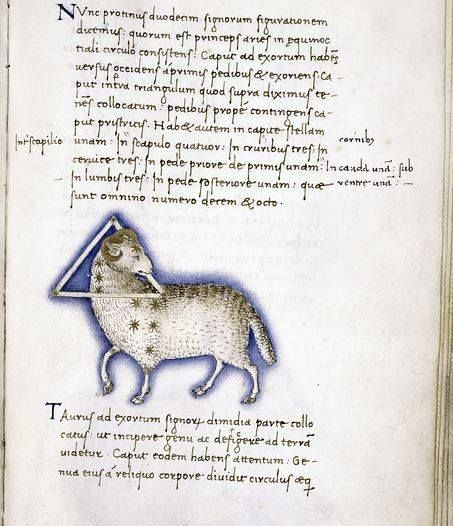 Nunc protinus duodecim signorum figurationem
dicemus: quorum est princeps aries in equinoc
tiali circulo consistens: Caput ad exortum habēs
versus occidens a primis pedibus & exoriens: Ca-
put intra triangulum quod supra diximus te-
nēs collocatum: pedibus prope contingens ca-
put pristricis. Habet autem in capite stellam
Inter scapilio unam: In scapulo quatuor: In cruribus tres: In cornibꝫ
cervice tres: In pede priore de primis unam: In cauda unā: sub
In lumbis tres: In pede posteriore unam: quae ventre unā:
sunt omnino numero decem & octo.
Taurus ad exortum signoꝝ dimidia parte collo
catus: ut incipere genu ac defigere ad terrā
videtur. Caput eodem habens attentum: Ge-
nua eius a reliquo corpore dividit circulus aeq